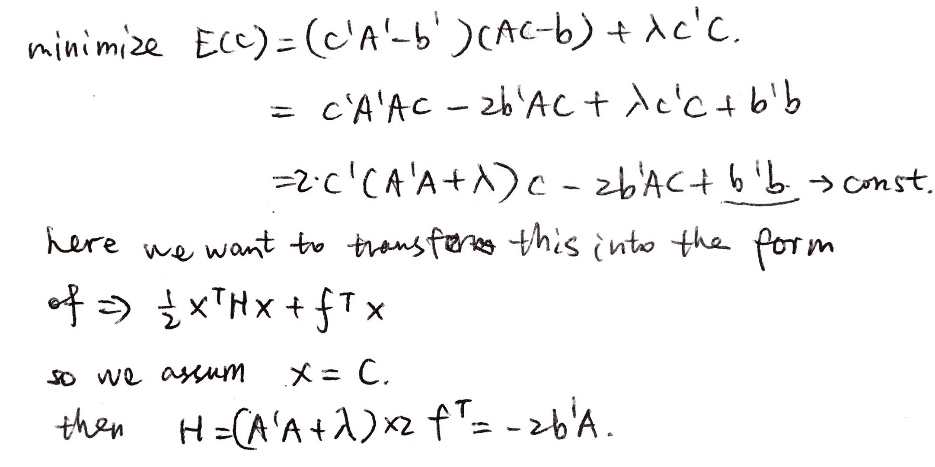 minimize E(c) = (c'A'-b')(Ac-b) + λc'c.
= c'A'Ac - 2b'Ac + λc'c + b'b
=2·c'(A'A+λ)c - 2b'Ac + b'b. → const.
here we want to transform this into the form
of ⇒ ½ xᵀHx + fᵀx
so we assum x = c.
then H=(A'A+λ)×2 fᵀ= -2b'A.